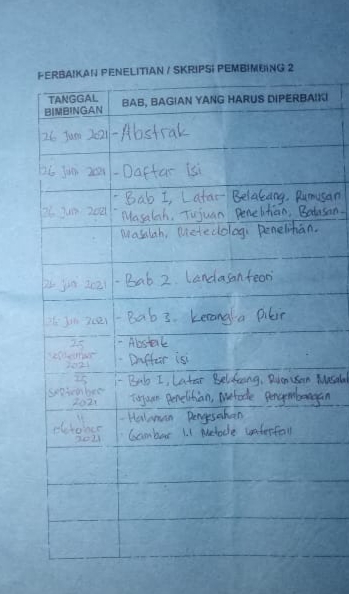 PERBAIKAN PENELITIAN / SKRIPSI PEMBIMBING 2
TANGGAL BIMBINGAN BAB, BAGIAN YANG HARUS DIPERBAIKI
26 Juni 2021 - Abstrak
26 Juni 2021 - Daftar isi
26 Juni 2021 - Bab I, Latar Belakang, Rumusan
Masalah, Tujuan Penelitian, Batasan
Masalah, Metedologi Penelitian.
26 Juni 2021 - Bab 2. Landasan teori
26 Juni 2021 - Bab 3. Kerangka Pikir
25 September 2021 - Abstrak
- Daftar isi
25 September 2021 - Bab I, Latar Belakang, Rumusan Masalah
Tujuan Penelitian, Metode Pengembangan
Oktober 2021 - Halaman Pengesahan
- Gambar 1.1 Metode Waterfall